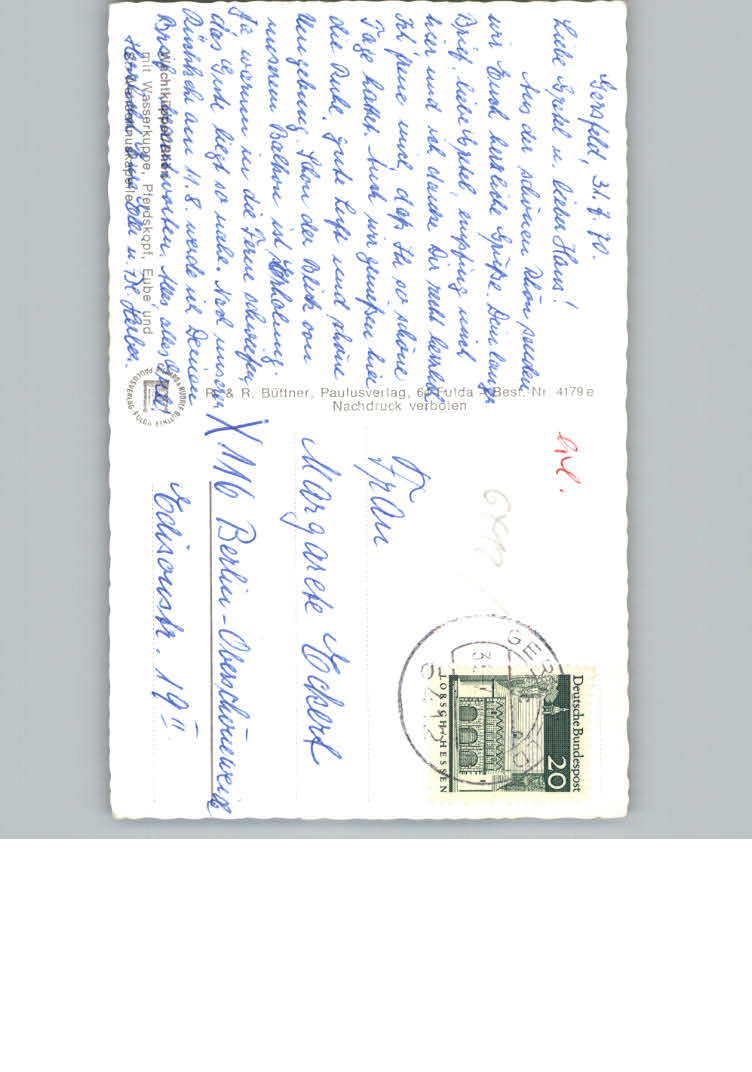 Gersfeld, 31.7.70.
Liebe Gretel u. lieber Hans!
Aus der schönen Rhön senden
wir Euch herzliche Grüße. Dein langer
Brief, liebe Gretel, empfing mich
hier und ich danke Dir recht herzlich.
Ich freue mich, daß Ihr so schöne
Tage hattet. Auch wir genießen hier
die Ruhe, gute Luft und schöne
Umgebung. Schon der Blick von
unserem Balkon ist Erholung.
Ja warum in die Ferne schweifen,
das Gute liegt so nahe. Nach unserer
Rückkehr am 11.8. werde ich Deinen
Brief beantworten. Alles Gute
Herzlichst u.
Wachtküppel / Rhön
mit Wasserkuppe, Pferdskopf, Eube und
R. & R. Büttner, Paulusverlag, 64 Fulda - Best.-Nr. 4179 e
Nachdruck verboten
PAULUSVERLAG FULDA
Frau
Margarete Eckert
X 116 Berlin-Oberschöneweide
Edisonstr. 19 II
Deutsche Bundespost
20
LORSCH / HESSEN
GERSFELD